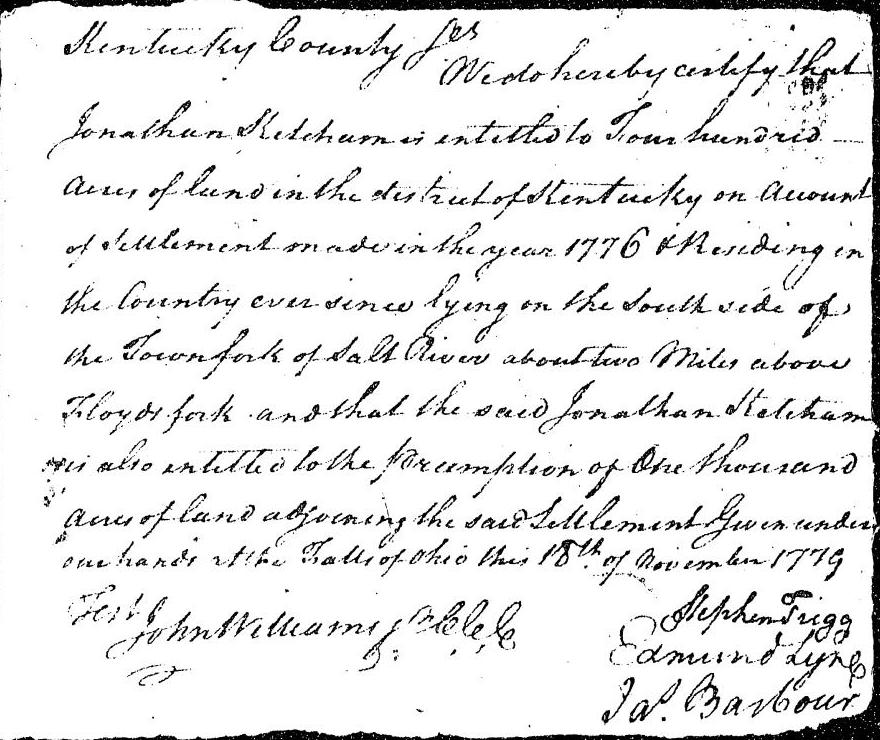 Kentucky County Scs
We do hereby certify that
Jonathan Ketcham is entitled to Four hundred
Acres of land in the district of Kentucky on Account
of Settlement made in the year 1776 & Residing in
the Country ever since lying on the South side of
the Townfork of Salt River about two Miles above
Floyds fork and that the said Jonathan Ketcham
is also entitled to the Preemption of One thousand
Acres of land adjoining the said Settlement Given under
our hands at the Falls of Ohio this 18th of November 1779
Test
Stephen Trigg
John Williams Jr C C C
Edmund Lyne
Jas. Barbour